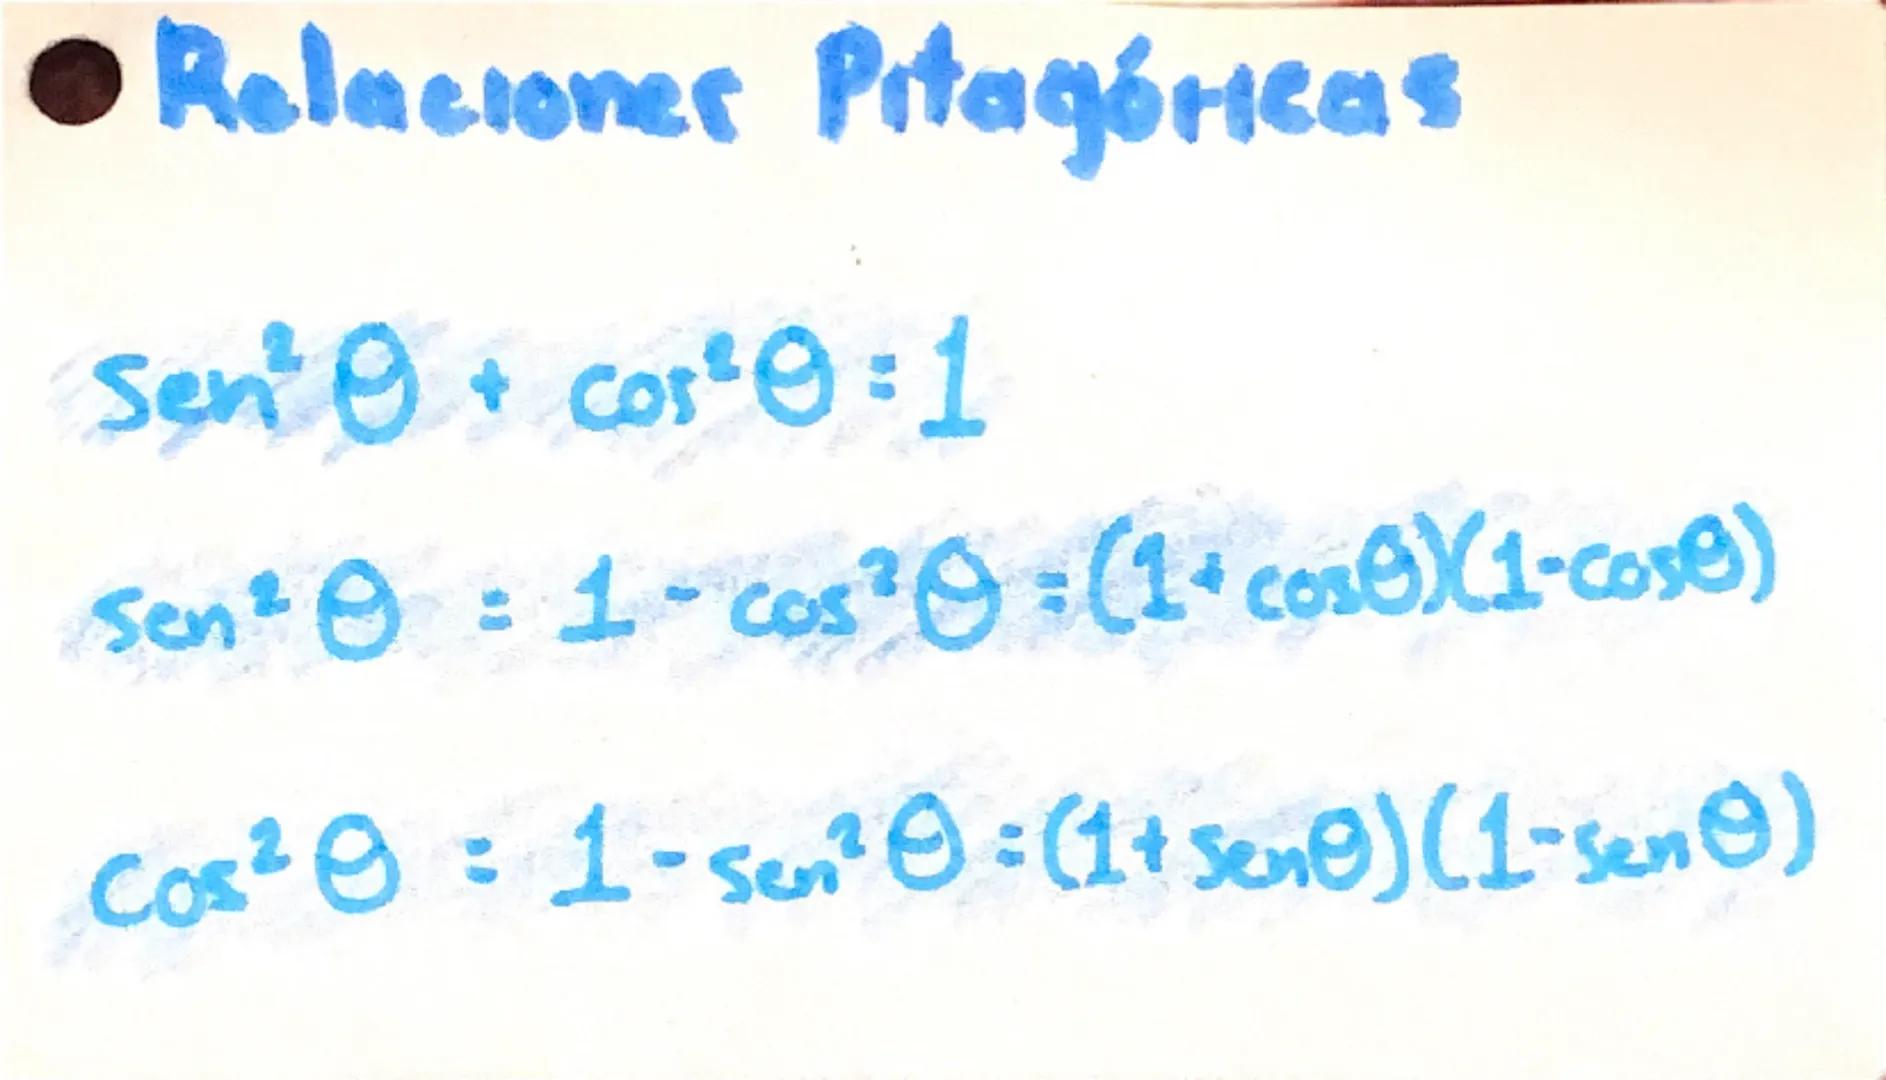 Relaciones Pitagóricas
sen²θ + cos²θ = 1
sen²θ = 1 - cos²θ = (1 + cosθ)(1 - cosθ)
cos²θ = 1 - sen²θ = (1 + senθ)(1 - senθ)